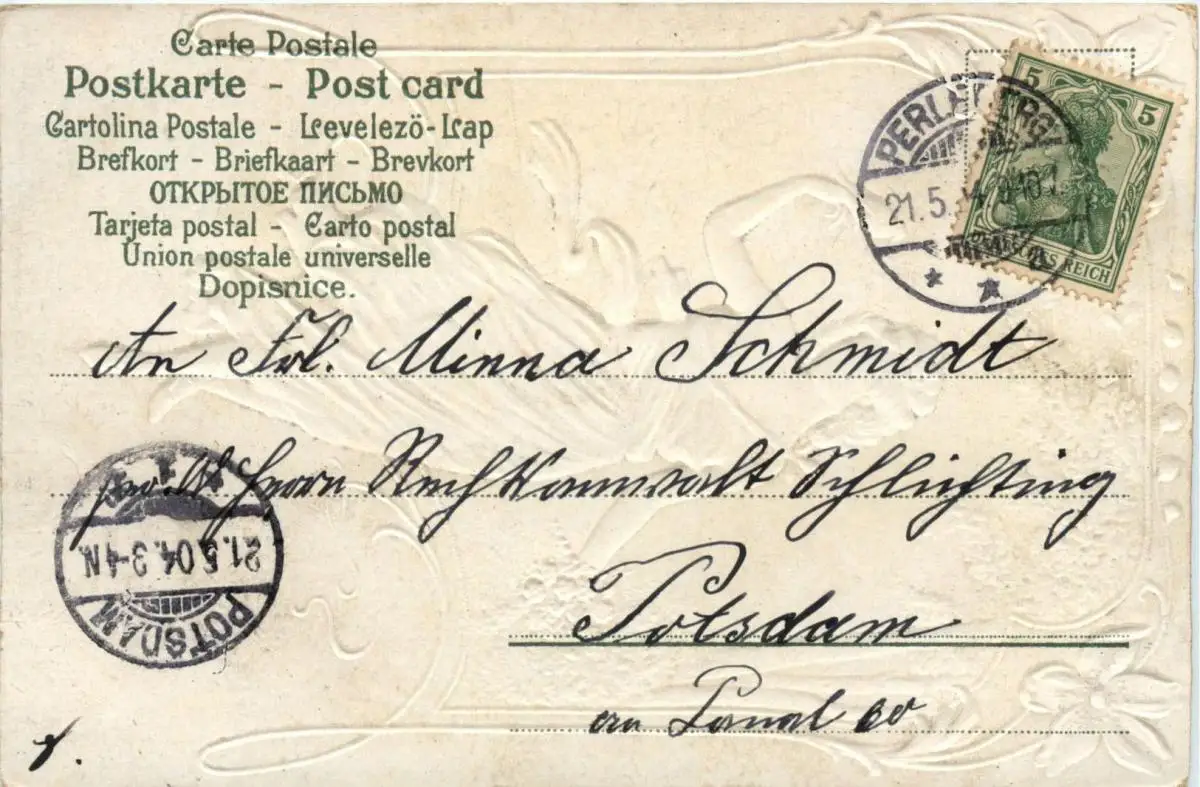 Carte Postale
Postkarte - Post card
Cartolina Postale - Levelezö-Lap
Brefkort - Briefkaart - Brevkort
ОТКРЫТОЕ ПИСЬМО
Tarjeta postal - Carto postal
Union postale universelle
Dopisnice.
5 5
DEUTSCHES REICH
PERLEBERG
21.5.
An Frl. Minna Schmidt
Herrn Rechtsanwalt Schlichting
Potsdam
am Kanal 60
21.5.04.3-4N.
POTSDAM